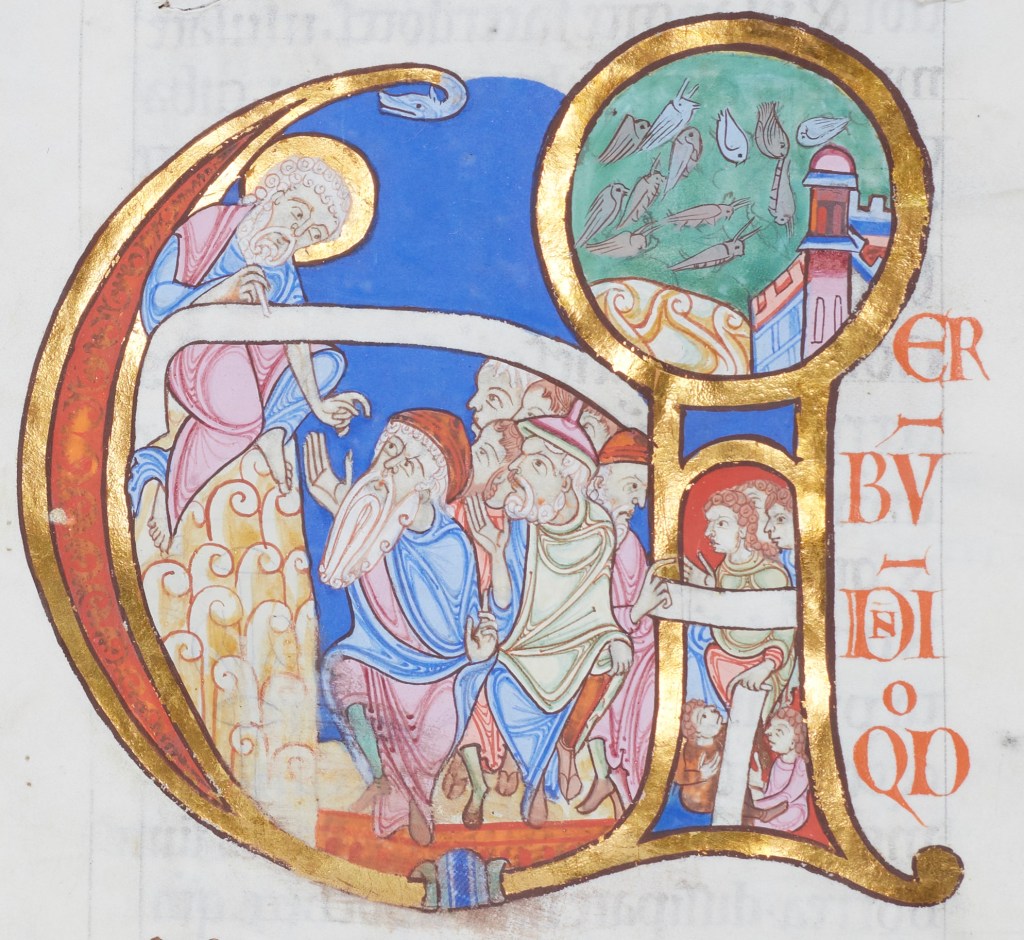 VER
BV̄
DN̄I
QͦD